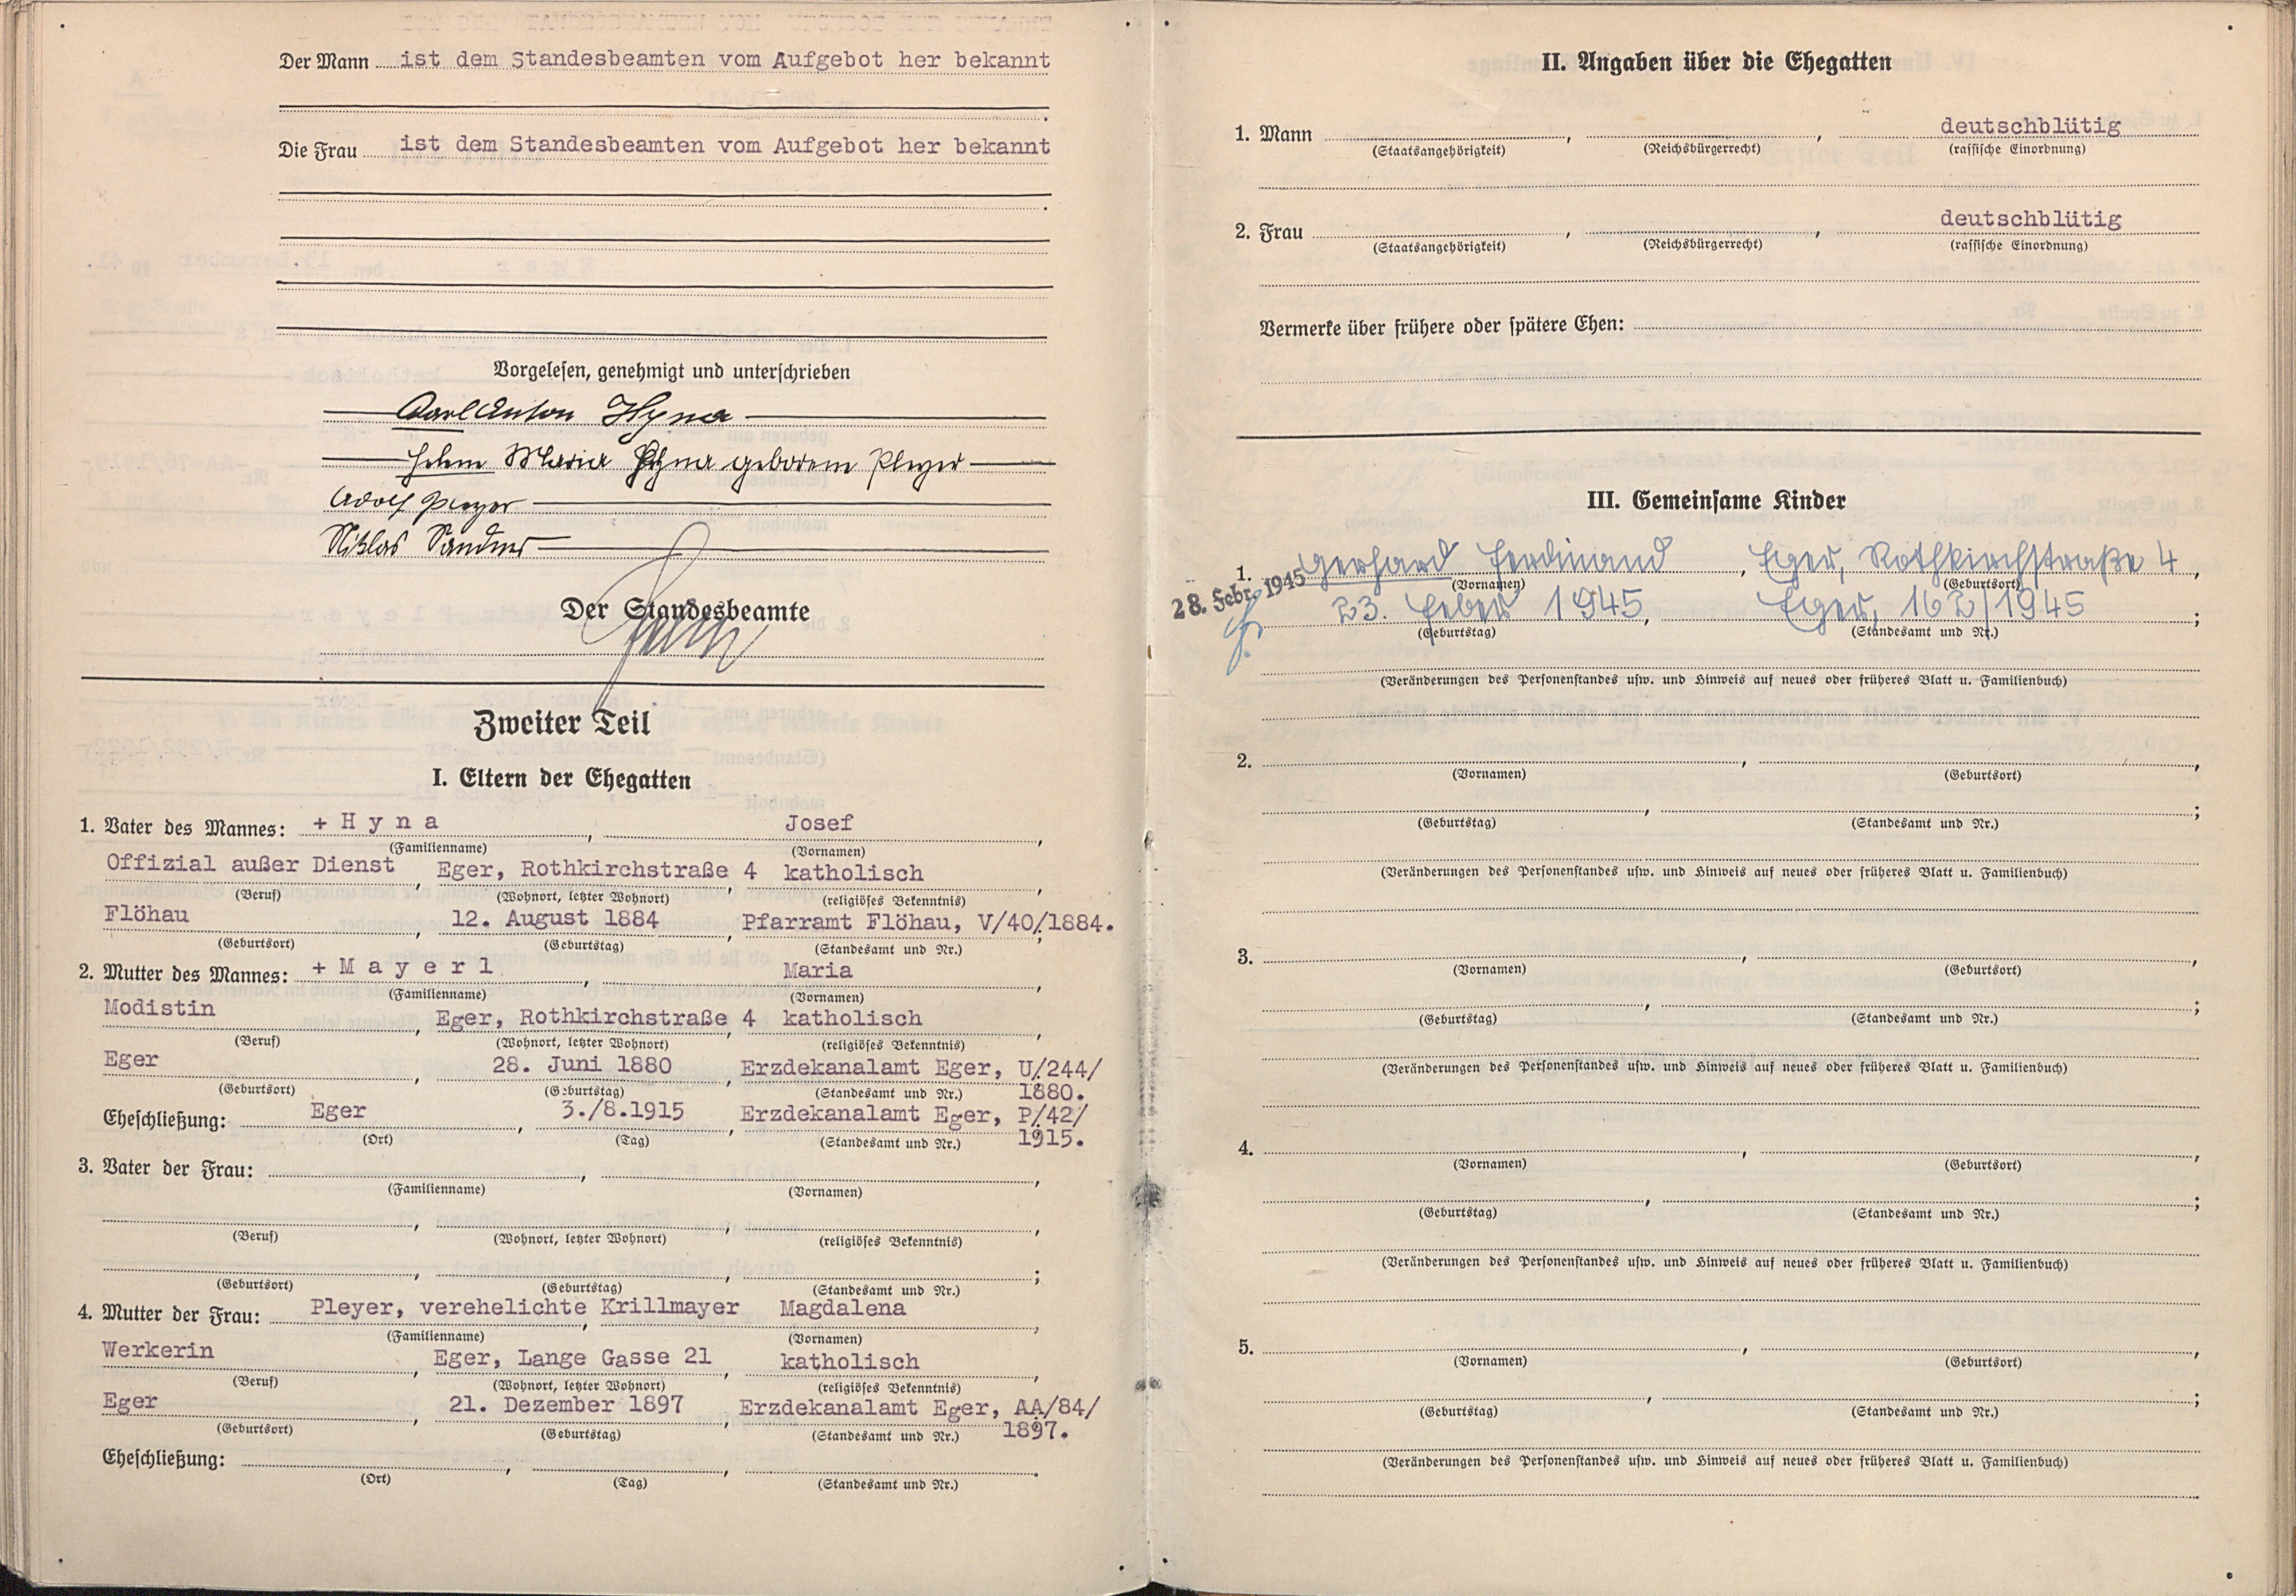 Der Mann ist dem Standesbeamten vom Aufgebot her bekannt
Die Frau ist dem Standesbeamten vom Aufgebot her bekannt
Vorgelesen, genehmigt und unterschrieben
Karl Anton Hyna
Helene Maria Hyna geborene Pleyer
Adolf Pleyer
Niklas Sandner
Der Standesbeamte
Zweiter Teil
I. Eltern der Ehegatten
1. Vater des Mannes: + H y n a , Josef ,
(Familienname) (Vornamen)
Offizial außer Dienst , Eger, Rothkirchstraße 4 , katholisch ,
(Beruf) (Wohnort, letzter Wohnort) (religiöses Bekenntnis)
Flöhau , 12. August 1884 , Pfarramt Flöhau, V/40/1884. ;
(Geburtsort) (Geburtstag) (Standesamt und Nr.)
2. Mutter des Mannes: + M a y e r l , Maria ,
(Familienname) (Vornamen)
Modistin , Eger, Rothkirchstraße 4 , katholisch ,
(Beruf) (Wohnort, letzter Wohnort) (religiöses Bekenntnis)
Eger , 28. Juni 1880 , Erzdekanalamt Eger, U/244/
(Geburtsort) (Geburtstag) (Standesamt und Nr.) 1880.
Eheschließung: Eger , 3./8.1915 , Erzdekanalamt Eger, P/42/
(Ort) (Tag) (Standesamt und Nr.) 1915.
3. Vater der Frau: , ,
(Familienname) (Vornamen)
, , ,
(Beruf) (Wohnort, letzter Wohnort) (religiöses Bekenntnis)
, , ;
(Geburtsort) (Geburtstag) (Standesamt und Nr.)
4. Mutter der Frau: Pleyer, verehelichte Krillmayer , Magdalena ,
(Familienname) (Vornamen)
Werkerin , Eger, Lange Gasse 21 , katholisch ,
(Beruf) (Wohnort, letzter Wohnort) (religiöses Bekenntnis)
Eger , 21. Dezember 1897 , Erzdekanalamt Eger, AA/84/
(Geburtsort) (Geburtstag) (Standesamt und Nr.) 1897.
Eheschließung: , , .
(Ort) (Tag) (Standesamt und Nr.)
II. Angaben über die Ehegatten
1. Mann , , deutschblütig
(Staatsangehörigkeit) (Reichsbürgerrecht) (rassische Einordnung)
2. Frau , , deutschblütig
(Staatsangehörigkeit) (Reichsbürgerrecht) (rassische Einordnung)
Vermerke über frühere oder spätere Ehen:
III. Gemeinsame Kinder
1. Gerhard Ferdinand , Eger, Rothkirchstraße 4 ,
28. Febr. 1945 (Vornamen) (Geburtsort)
23. Feber 1945 , Eger, 162/1945 ;
(Geburtstag) (Standesamt und Nr.)
(Veränderungen des Personenstandes usw. und Hinweis auf neues oder früheres Blatt u. Familienbuch)
2. , ,
(Vornamen) (Geburtsort)
, ;
(Geburtstag) (Standesamt und Nr.)
(Veränderungen des Personenstandes usw. und Hinweis auf neues oder früheres Blatt u. Familienbuch)
3. , ,
(Vornamen) (Geburtsort)
, ;
(Geburtstag) (Standesamt und Nr.)
(Veränderungen des Personenstandes usw. und Hinweis auf neues oder früheres Blatt u. Familienbuch)
4. , ,
(Vornamen) (Geburtsort)
, ;
(Geburtstag) (Standesamt und Nr.)
(Veränderungen des Personenstandes usw. und Hinweis auf neues oder früheres Blatt u. Familienbuch)
5. , ,
(Vornamen) (Geburtsort)
, ;
(Geburtstag) (Standesamt und Nr.)
(Veränderungen des Personenstandes usw. und Hinweis auf neues oder früheres Blatt u. Familienbuch)